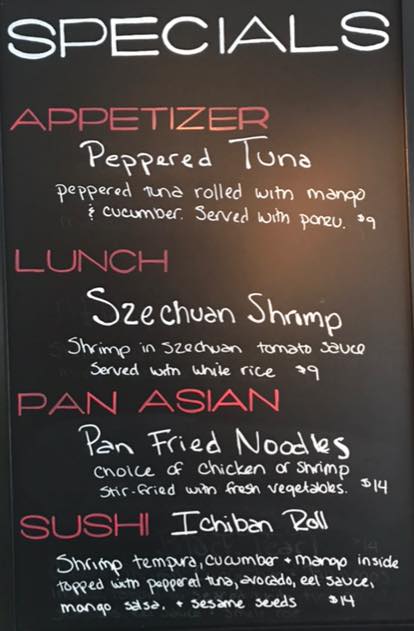 SPECIALS
APPETIZER
Peppered Tuna
peppered tuna rolled with mango
& cucumber. Served with ponzu. $9
LUNCH
Szechuan Shrimp
Shrimp in Szechuan tomato sauce
Served with white rice $9
PAN ASIAN
Pan Fried Noodles
choice of chicken or shrimp
stir-fried with fresh vegetables. $14
SUSHI Ichiban Roll
Shrimp tempura, cucumber + mango inside
topped with peppered tuna, avocado, eel sauce,
mango salsa, + sesame seeds $14